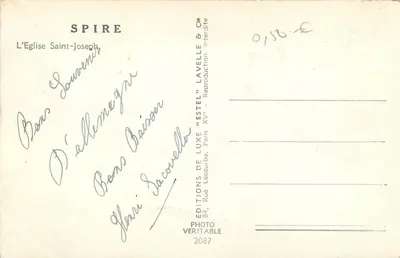 SPIRE
L'Eglise Saint-Joseph
0,50 €
Bons Souvenir
D'allemagne
Bons Baiser
Henri Iacovella
EDITIONS DE LUXE "ESTEL" LAVELLE & Cie
84, Rue Lecourbe, Paris XVe Reproduction interdite
PHOTO
VERITABLE
2087